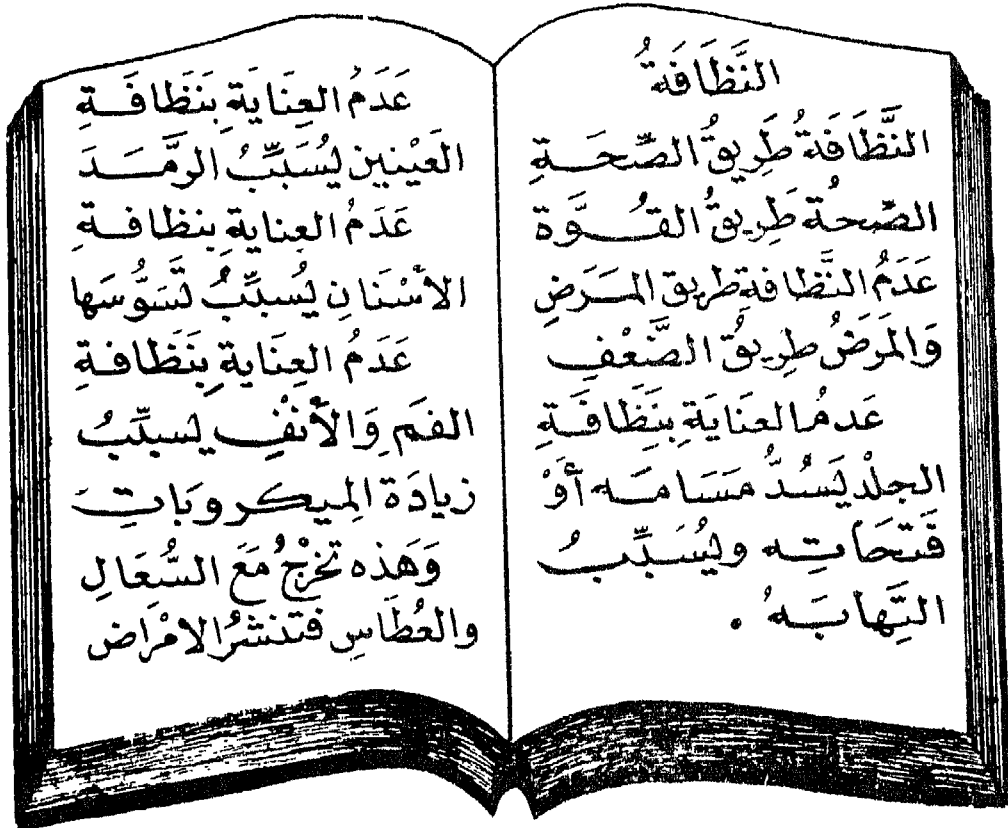 النَّظَافَةُ
النَّظَافَةُ طَرِيقُ الصِّحَةِ
الصِّحةُ طَرِيقُ القُوَّة
عَدَمُ النَّظافةِ طريق المَرَضِ
وَالمَرَضُ طَرِيقُ الضَّعْفِ
عَدمُ العنَايَةِ بِنَظَافَةِ
الجلْد يَسُدُّ مَسَامَه أَوْ
فَتحَاتِه ويُسَبِّبُ
التِهابَهُ .
عَدَمُ العِنَايَةِ بِنَظَافَةِ
العَيْنين يُسَبِّبُ الرَّمَدَ
عَدَمُ العِنايةِ بِنظافةِ
الأسْنَانِ يُسبِّبُ تَسَوُّسَها
عَدَمُ العِنَايةِ بِنَظَافةِ
الفَمِ وَالأَنفِ يسبِّبُ
زيادَة المِيكروبَاتِ
وَهَذه تخْرُجُ مَعَ السُّعَالِ
والعُطَاسِ فتَنشرُ الامْرَاض